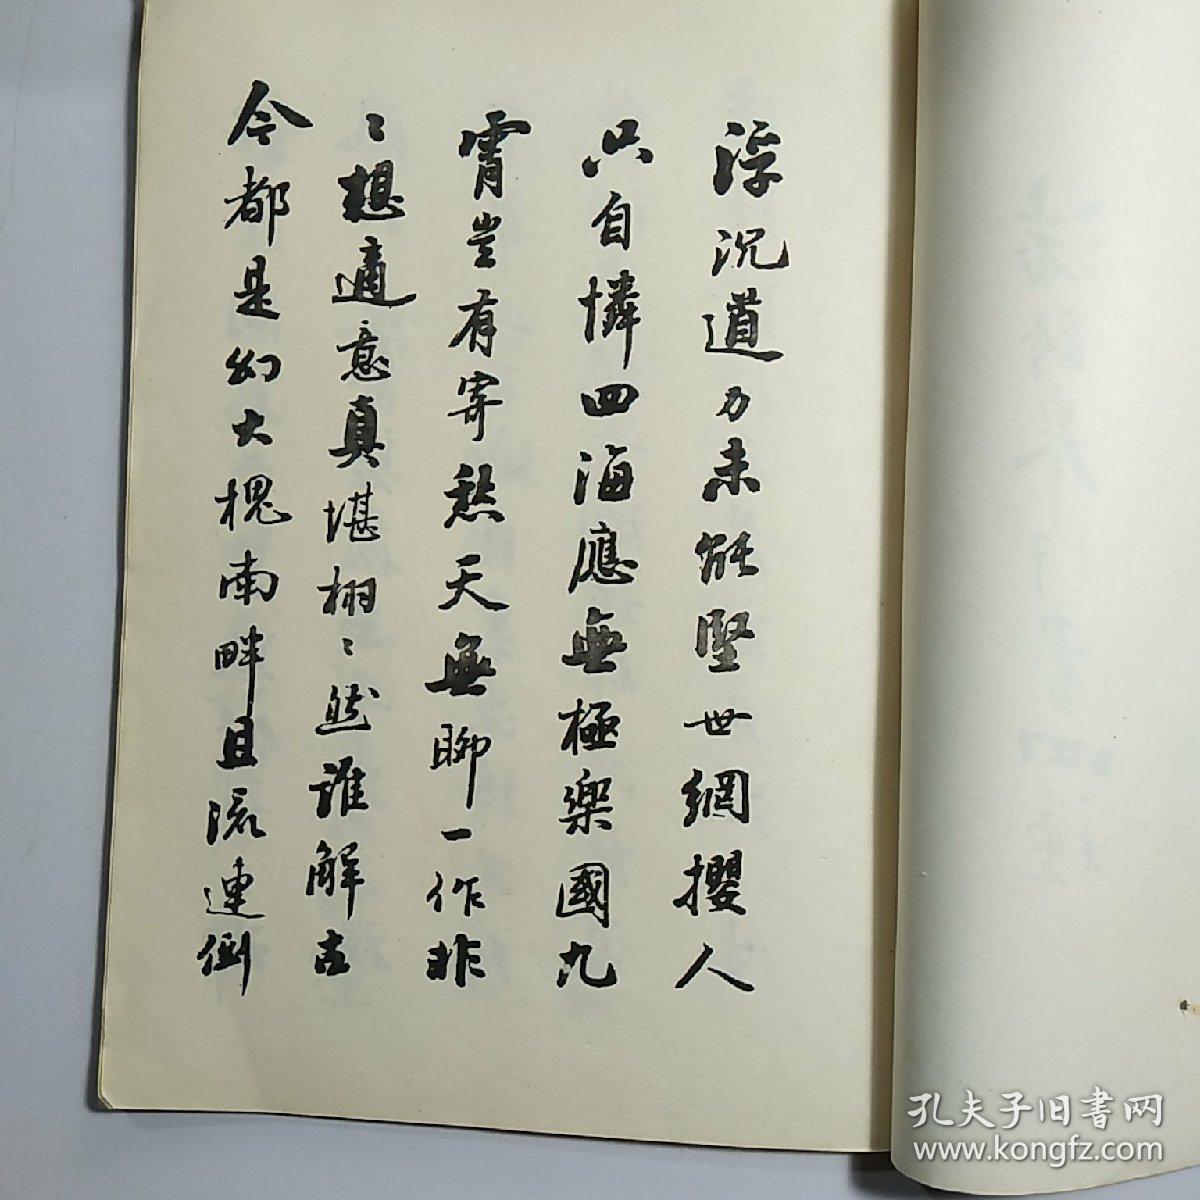 浮沉道力未能堅世網攖人
只自憐四海應無極樂國九
霄豈有寄愁天無聊一作非
〻想適意真堪栩〻然誰解古
今都是幻大槐南畔且流連倒
孔夫子旧书网
www.kongfz.com